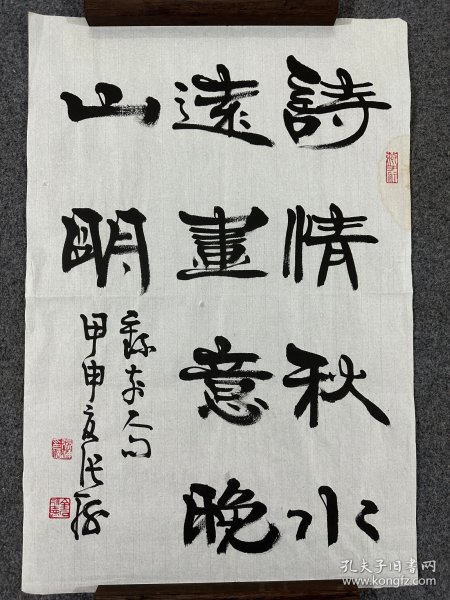 詩情秋水
遠畫意晚
山明
錄古人句
甲申夏
孔夫子旧书网
www.kongfz.com